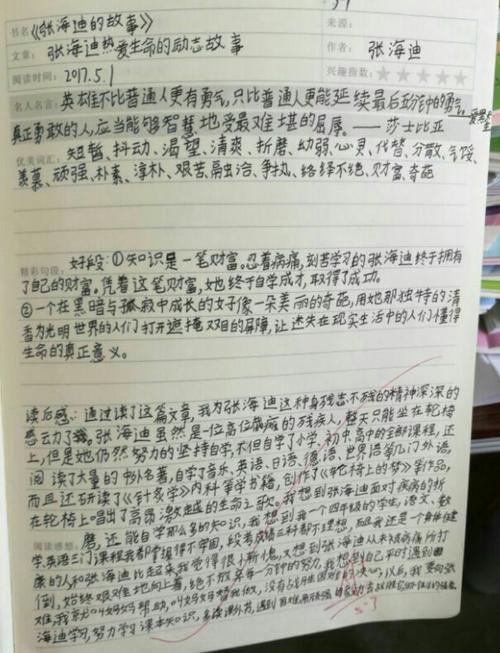 书名《张海迪的故事》
来源：
文章：张海迪热爱生命的励志故事
作者：张海迪
阅读时间：2017.5.1
兴趣指数：
名人名言：英雄不比普通人更有勇气，只比普通人更能延续最后五分钟的勇气
真正勇敢的人，应当能够智慧地受最难堪的屈辱。——莎士比亚
优美词汇：短暂、抖动、渴望、清爽、折磨、幼弱、心灵、代替、分散、气馁、
羡慕、顽强、朴素、淳朴、艰苦、融洽、争执、络绎不绝、财富、奇葩
好段：①知识是一笔财富。忍着病痛，刻苦学习的张海迪终于拥有
精彩句段：
了自己的财富。凭着这笔财富，她终于自学成才，取得了成功。
②一个在黑暗与孤寂中成长的女子像一朵美丽的奇葩，用她那独特的清
香为光明世界的人们打开遮掩双目的屏障，让迷失在现实生活中的人们懂得
生命的真正意义。
读后感：通过读了这篇文章，我为张海迪这种身残志不残的精神深深的
感动了。张海迪虽然是一位高位截瘫的残疾人，整天只能坐在轮椅
上，但是她仍然努力的坚持自学，不但自学了小学、初中、高中的全部课程，还
阅读了大量的中外名著，自学了音乐、英语、日语、德语、世界语等几门外语，
而且还研读了《针灸学》内科等学书籍，创作了《轮椅上的梦》等作品，
在轮椅上唱出了高昂激越的生命之歌。我想到张海迪面对疾病的折
磨，还能自学那么多的知识，我想到我一个四年级的学生，语文、数
阅读感想：
学、英语三门课程我都学得不牢固，段考成绩三科都不理想，而我还是一个身体健
康的人和张海迪比起来我觉得很惭愧，又想到张海迪从未被病痛所打
倒，始终艰难地向上着，绝不放弃每一分钟的努力，我想到自己平时遇到困
难，我就叫妈妈帮助，叫妈妈替我做，没有战胜困难的决心，以后，我要向张
海迪学习，努力学习课本知识，多读课外书，遇到困难
5-3